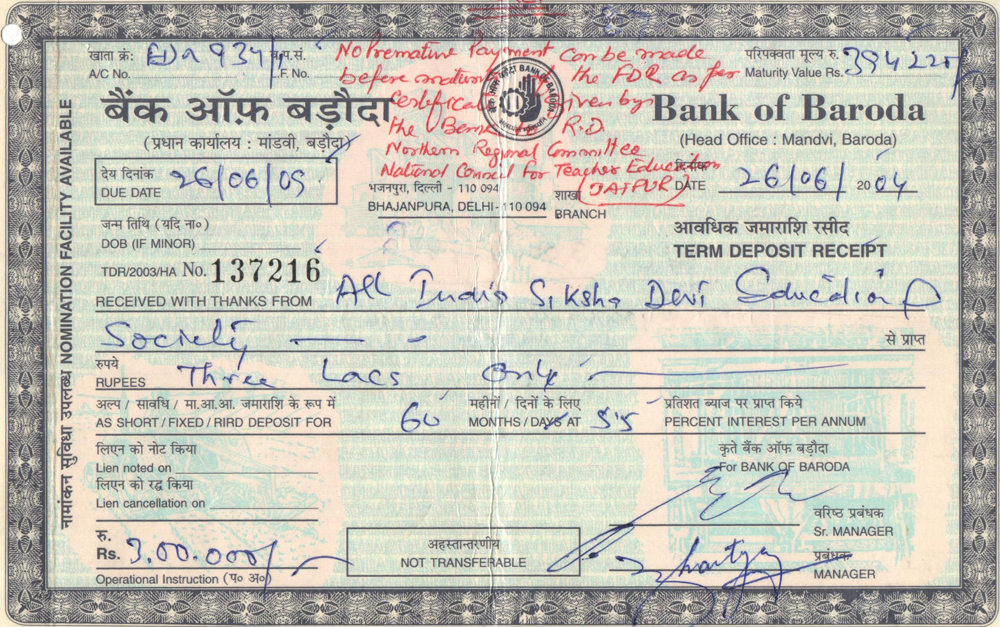 खाता क्रं:
A/C No.
F. No.
No Premature Payment can be made
before
the FDR as per
given by
the Bank
R.D.
Northern Regional Committee
National Council for Teacher Education
(JAIPUR)
परिपक्वता मूल्य रु.
Maturity Value Rs. 394220/
बैंक ऑफ़ बड़ौदा
(प्रधान कार्यालय : मांडवी, बड़ौदा)
Bank of Baroda
(Head Office : Mandvi, Baroda)
देय दिनांक
DUE DATE 26/06/09
भजनपुरा, दिल्ली - 110 094
BHAJANPURA, DELHI-110 094
शाखा
BRANCH
दिनांक
DATE 26/06/ 2004
जन्म तिथि (यदि ना०)
DOB (IF MINOR)
आवधिक जमाराशि रसीद
TERM DEPOSIT RECEIPT
TDR/2003/HA No. 137216
RECEIVED WITH THANKS FROM All India Siksha Devi Education
Society
से प्राप्त
रुपये
RUPEES Three Lacs Only
अल्प / सावधि / मा.आ.आ. जमाराशि के रूप में महीनों / दिनों के लिए प्रतिशत ब्याज पर प्राप्त किये
AS SHORT / FIXED / RIRD DEPOSIT FOR 60 MONTHS / DAYS AT PERCENT INTEREST PER ANNUM
लिएन को नोट किया
Lien noted on
लिएन को रद्द किया
Lien cancellation on
कृते बैंक ऑफ बड़ौदा
For BANK OF BARODA
वरिष्ठ प्रबंधक
Sr. MANAGER
रु.
Rs. 3,00,000/
अहस्तान्तरणीय
NOT TRANSFERABLE
प्रबंधक
MANAGER
Operational Instruction (प० अ०)
नामांकन सुविधा उपलब्ध NOMINATION FACILITY AVAILABLE